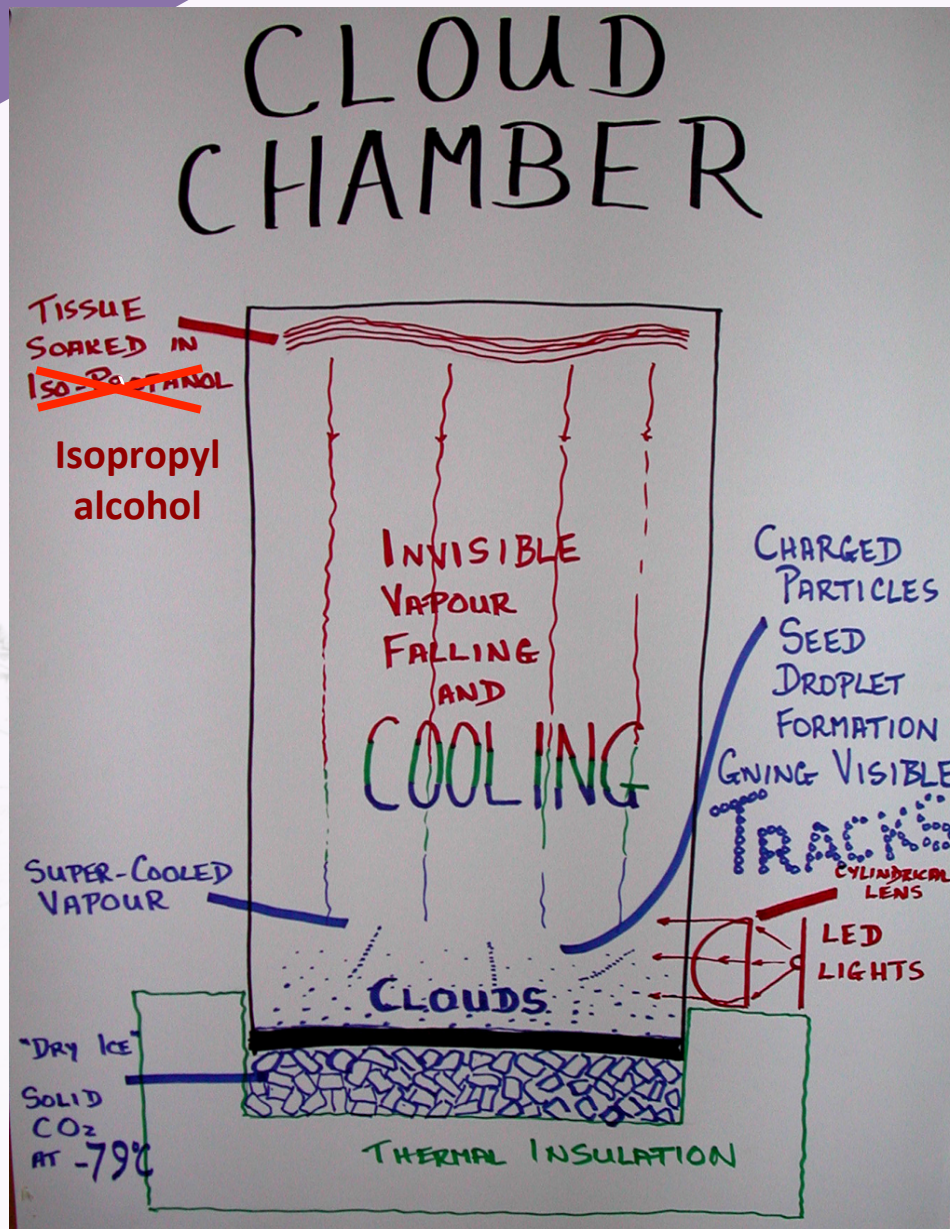 CLOUD
CHAMBER
TISSUE
SOAKED IN
ISO-PROPANOL
Isopropyl
alcohol
INVISIBLE
VAPOUR
FALLING
AND
COOLING
CHARGED
PARTICLES
SEED
DROPLET
FORMATION
GIVING VISIBLE
TRACKS
SUPER-COOLED
VAPOUR
CYLINDRICAL
LENS
LED
LIGHTS
CLOUDS
"DRY ICE"
SOLID
CO2
AT -79°C
THERMAL INSULATION